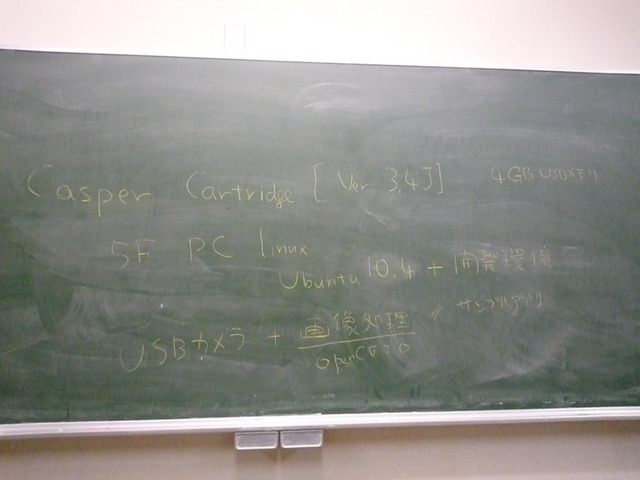 Casper Cartridge [Ver 3.4J] 4GB USBメモリ
5F PC linux
Ubuntu 10.4 + 開発環境
〃 サンプルアプリ
USBカメラ + 画像処理
OpenCV 2.0